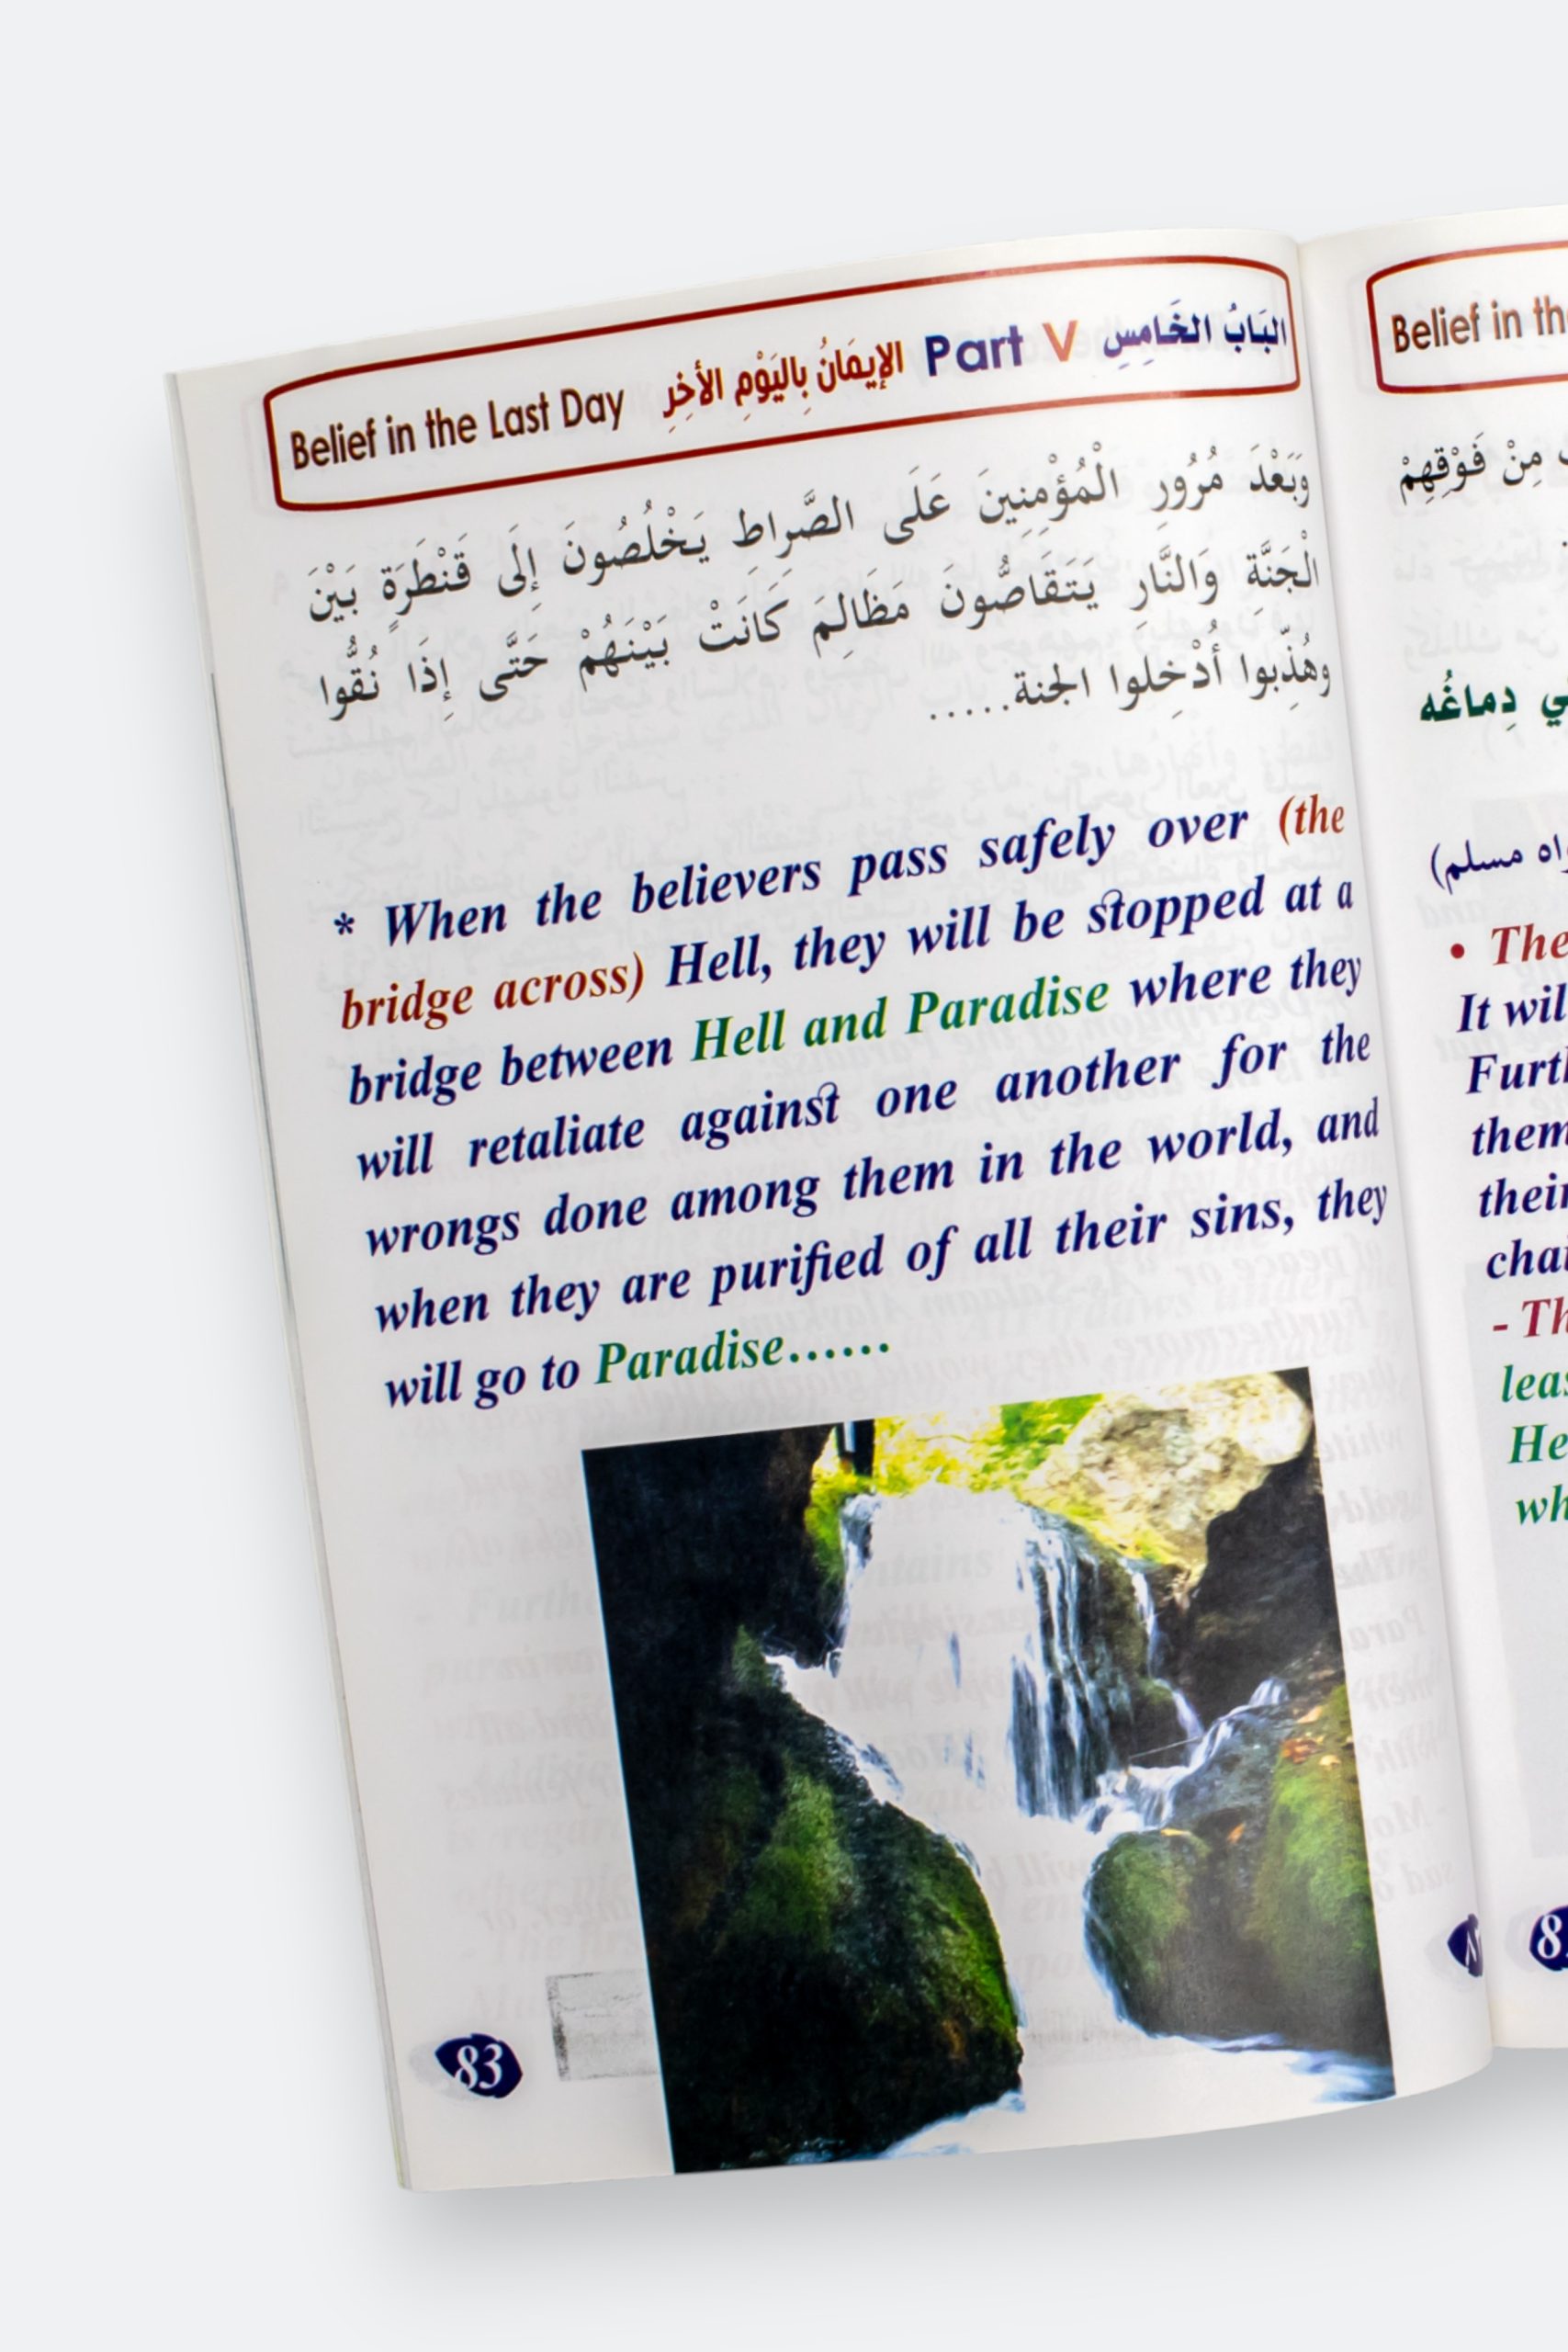 Belief in the Last Day الإيمَانُ بِاليَوْمِ الأخِرِ Part V البَابُ الخَامِسِ
وَبَعْدَ مُرُورِ الْمُؤْمِنِينَ عَلَى الصَّرِاطِ يَخْلُصُونَ إِلَى قَنْطَرَةٍ بَيْنَ
الْجَنَّةِ وَالنَّارِ يَتَقَاصُّونَ مَظَالِمَ كَانَتْ بَيْنَهُمْ حَتَّى إِذَا نُقُّوا
وهُذِّبوا أُدْخِلوا الجنة.....
* When the believers pass safely over (the
bridge across) Hell, they will be stopped at a
bridge between Hell and Paradise where they
will retaliate against one another for the
wrongs done among them in the world, and
when they are purified of all their sins, they
will go to Paradise......
83
Belief in
مِنْ فَوْقِهِمْ
دِماغُه
مسلم)
• The
It
their
- 
He
8